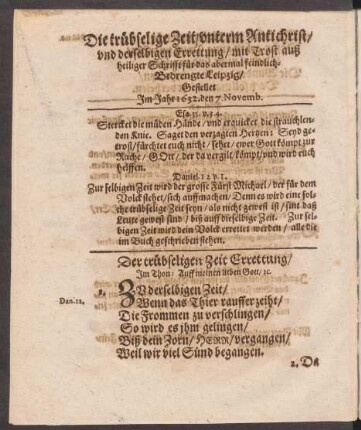 Die trübselige Zeit/vnterm Antichrist/
vnd derselbigen Errettung/mit Trost auß
heiliger Schrifft für das abermal feindlich-
Bedrengte Leipzig/
Gestellet
Im Jahr 1632. den 7. Novemb.
Esa. 35. v. 3. 4.
Stercket die müden Hände/vnd erquicket die strauchlen-
den Knie. Saget den verzagten Hertzen: Seyd ge-
trost/fürchtet euch nicht/sehet/ewer Gott kömpt zur
Rache/GOtt/der da vergilt/kömpt/vnd wird euch
helffen.
Daniel. 12 v. 1.
Zur selbigen Zeit wird der grosse Fürst Michael/der für dem
Volck stehet/sich auffmachen/Denn es wird eine sol-
che trübselige Zeit seyn/als nicht gewest ist/sint daß
Leute gewest sind/biß auff dieselbige Zeit. Zur sel-
bigen Zeit wird dein Volck errettet werden/alle die
im Buch geschrieben stehen.
Der trübseligen Zeit Errettung/
Im Thon: Auff meinen lieben Gott/ꝛc.
Dan. 12.
ZU derselbigen Zeit/
Wenn das Thier rauffer zeiht/
Die Frommen zu verschlingen/
So wird es ihm gelingen/
Biß dein Zorn/HERR/vergangen/
Weil wir viel Sünd begangen.
2. Da